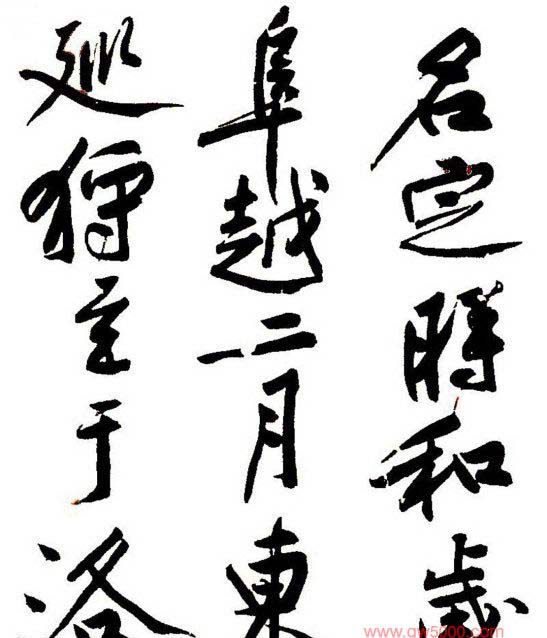 名定時和歲
阜越二月東
巡狩至于洛
www.gw5000.com